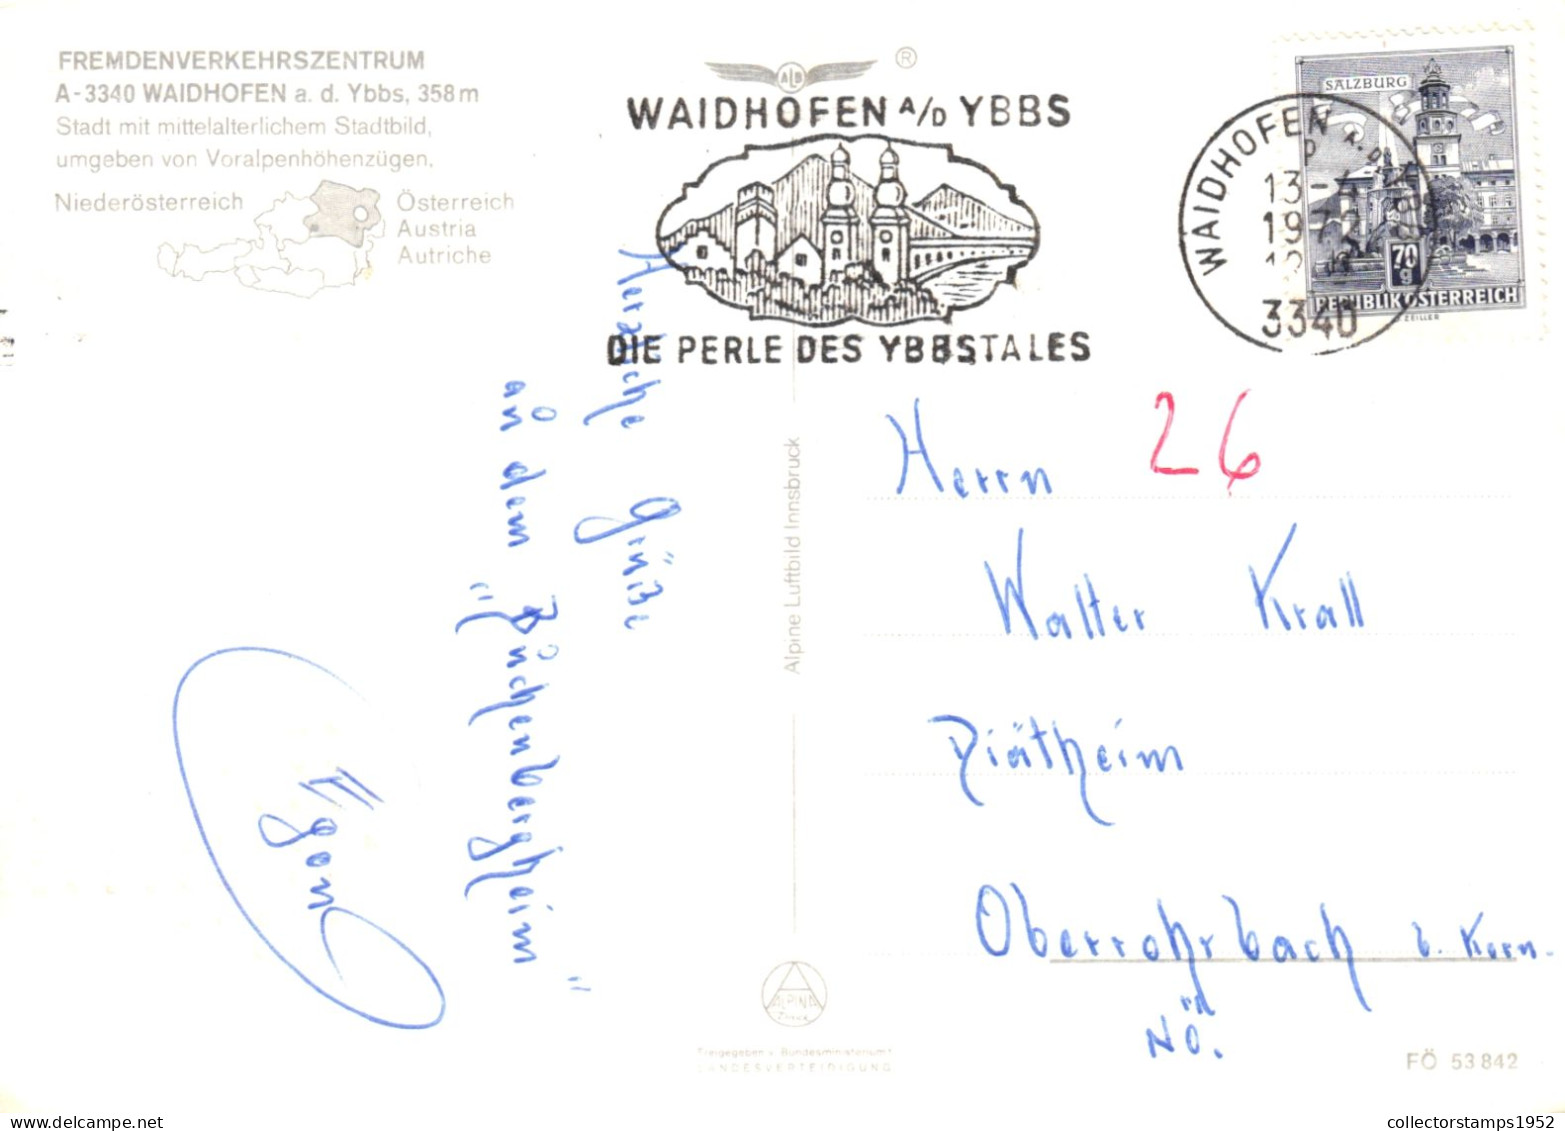 FREMDENVERKEHRSZENTRUM
A-3340 WAIDHOFEN a. d. Ybbs, 358 m
Stadt mit mittelalterlichem Stadtbild,
umgeben von Voralpenhöhenzügen.
Niederösterreich
Österreich
Austria
Autriche
ALB ®
WAIDHOFEN A/D YBBS
DIE PERLE DES YBBSTALES
WAIDHOFEN A.D.
13-4
19
3340
SALZBURG
70
g
REPUBLIK ÖSTERREICH
ZEILLER
Herzliche Grüße
an dem
"Büchenbergheim"
Egon
Alpine Luftbild Innsbruck
26
Herrn
Walter Krall
Diätheim
Oberrohrbach b. Korn.
NÖ.
ALPINA
Druck
Freigegeben v. Bundesministerium f.
LANDESVERTEIDIGUNG
FÖ 53 842
collectorstamps1952